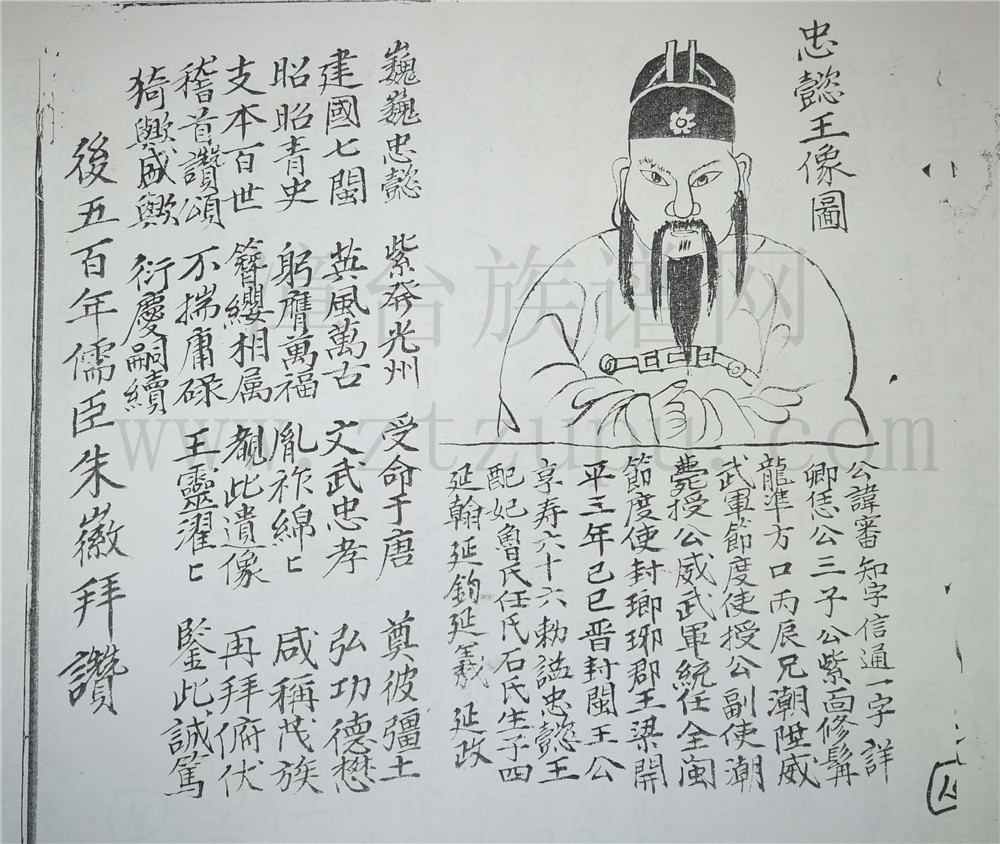 忠懿王像圖
公諱審知字信通一字詳
卿恁公三子公紫面修髯
龍準方口丙辰兄潮陞威
武軍節度使授公副使潮
薨授公威武軍統任全閩
節度使封瑯琊郡王梁開
平三年己巳晋封閩王公
享寿六十六勅謚忠懿王
配妃魯氏任氏石氏生子四
延翰延鈞延義 延政
巍巍忠懿 紫發光州 受命于唐 奠彼疆土
建國七閩 英風萬古 文武忠孝 弘功德懋
昭昭青史 躬膺萬福 胤祚綿匕 咸稱茂族
支本百世 簪纓相属 覩此遺像 再拜俯伏
稽首讚頌 不揣庸碌 王靈濯匕 鑒此誠篤
猗歟盛歟 衍慶嗣續
後五百年儒臣朱徽拜讚
章台族谱网
www.ztzupu.com